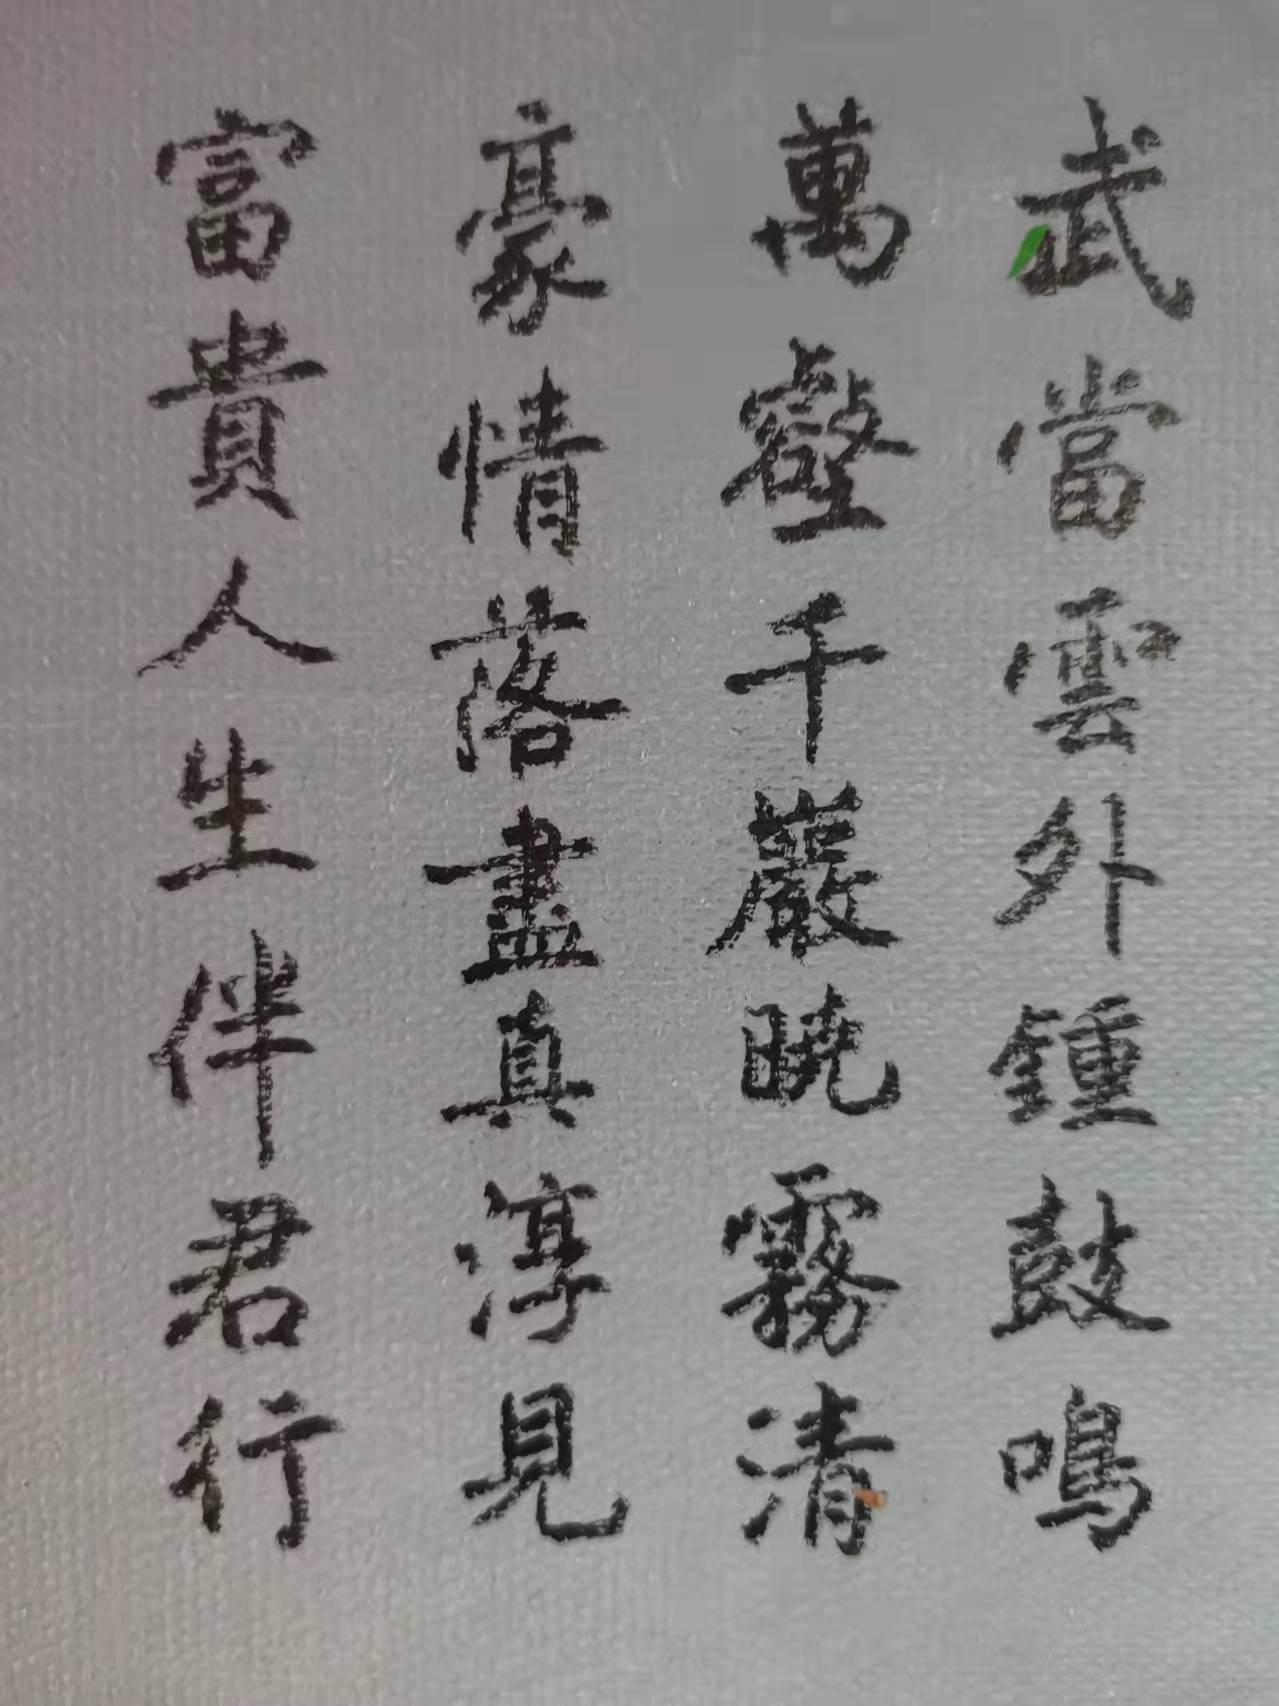 武當雲外鍾鼓鳴
萬壑千巖曉霧清
豪情落盡真淳見
富貴人生伴君行